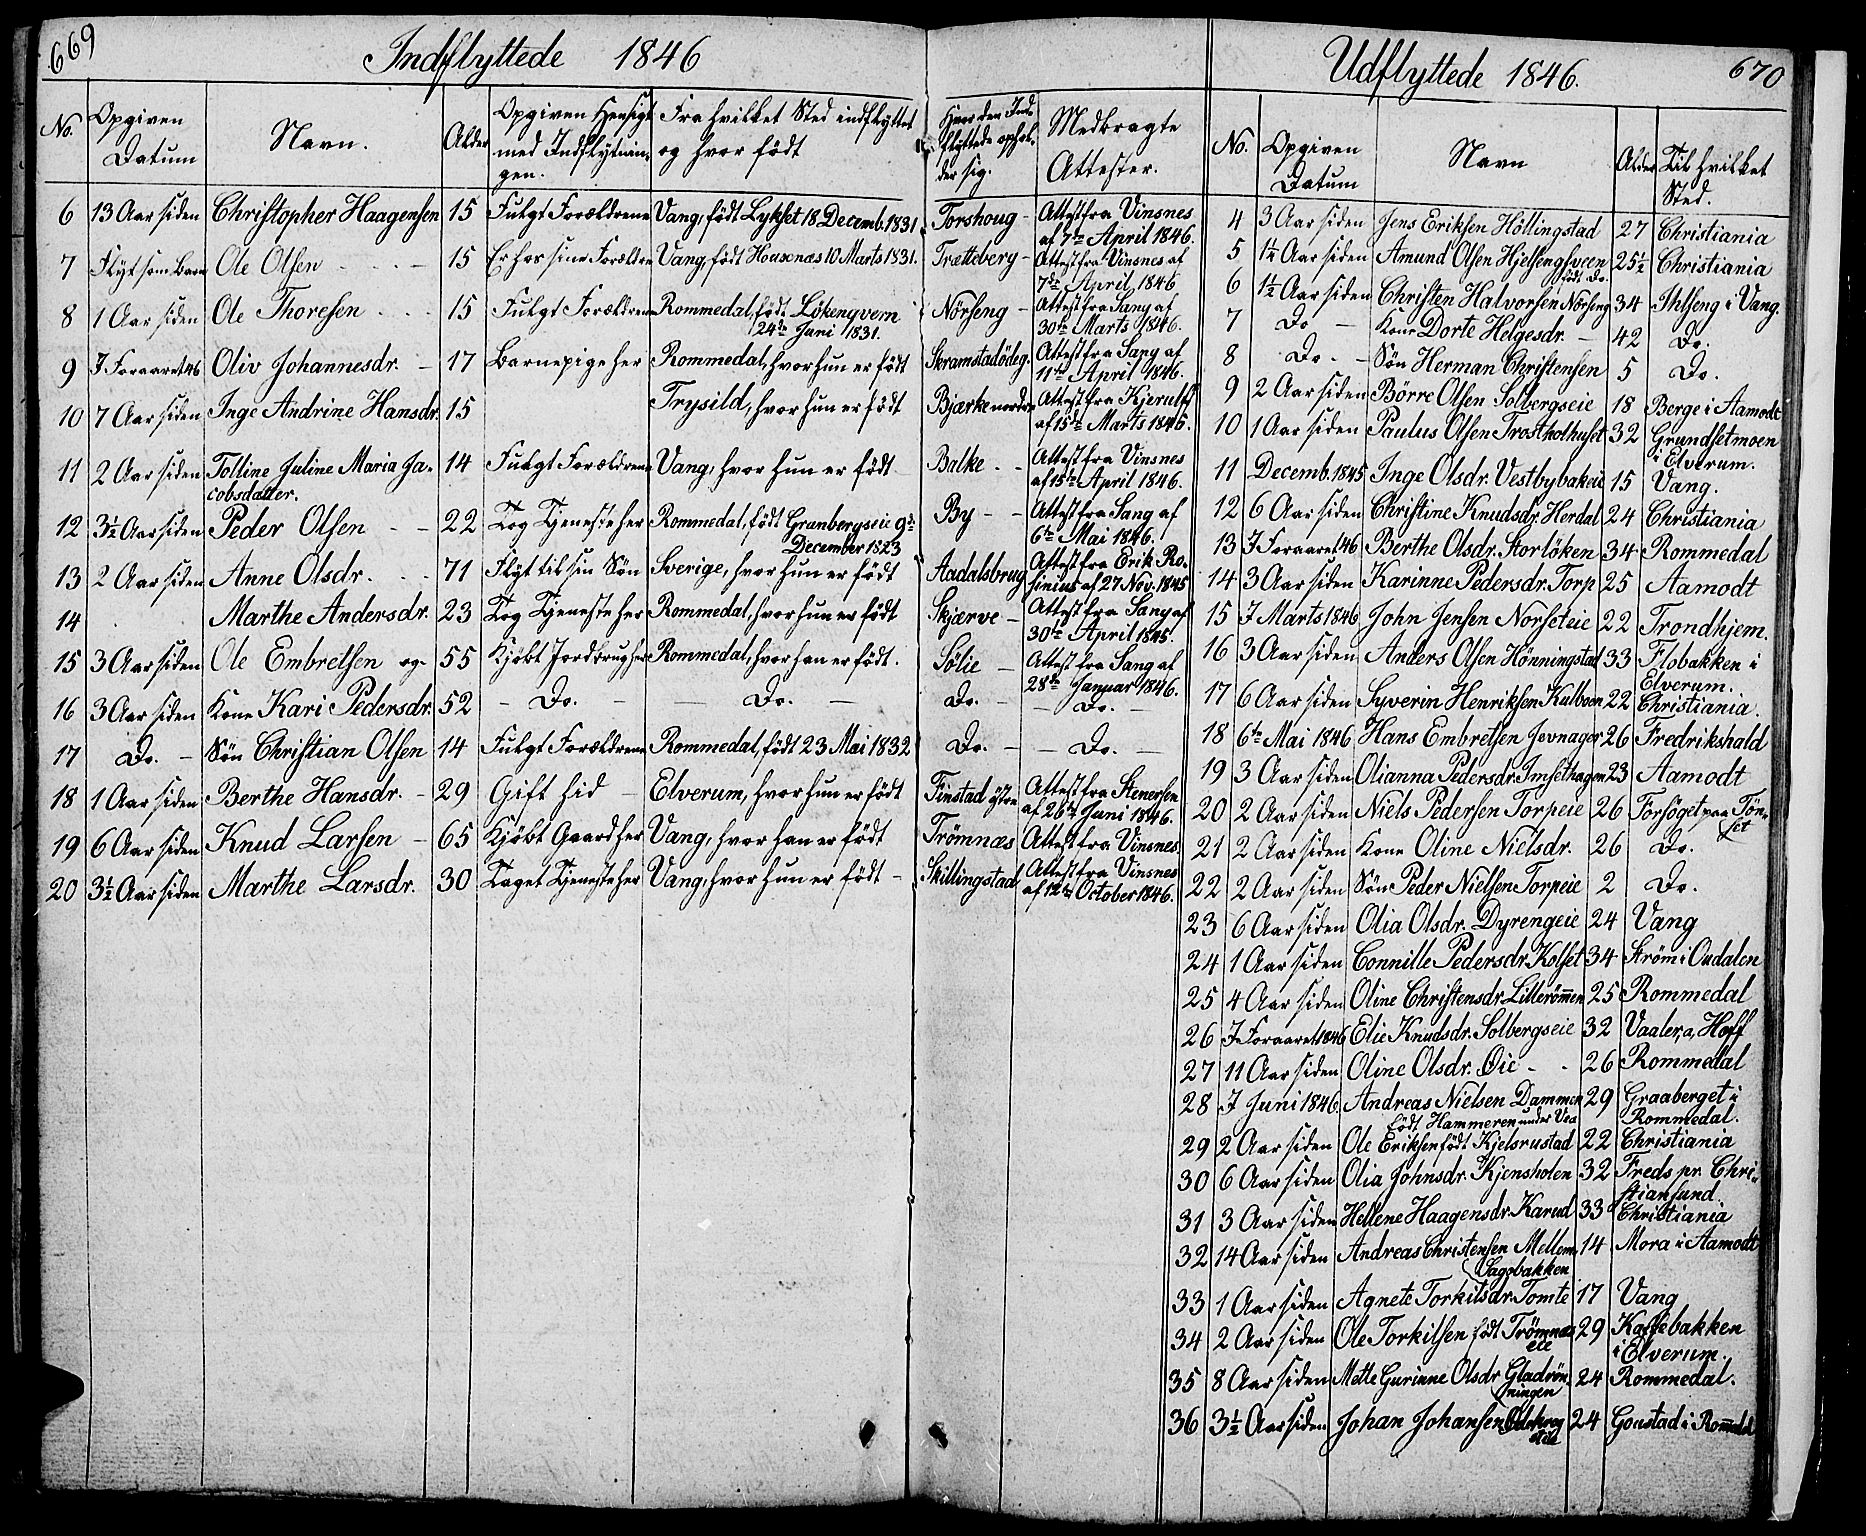 669
Indflyttede 1846
No. Opgiven Datum Navn. Alder Opgiven Hensigt med Indflytningen. Fra hvilket Sted indflyttet og hvor født Hvor den Indflyttede opholder sig. Medbragte Attester.
6 13 Aar siden Christopher Haagensen 15 Fulgt Forældrene Vang, født Lykset 18 Decemb. 1831 Torshoug - Attest fra Vinsnes af 7de April 1846.
7 Flyt som Barn Ole Olsen - - - 15 Er hos sine Forældre Vang, født Housenæs 10 Marts 1831. Trætteberg - Attest fra Vinsnes af 7de April 1846
8 1 Aar siden Ole Thoresen . . . 15 Fulgt Forældrene Rommedal, født Lökengvern 24de Juni 1831. Nörseng - Attest fra Sang af 30te Marts 1846.
9 I Foraaret 46 Oliv Johannesdr. - 17 Barnepige her Rommedal, hvor hun er født Skramstadödeg. Attest fra Sang af 11te April 1846.
10 7 Aar siden Inge Andrine Hansdr. 15 Trysild, hvor hun er født Bjærke nordre Attest fra Kjerulff af 15de Marts 1846.
11 2 Aar siden Tolline Juline Maria Jacobsdatter. 14 Fulgt Forældrene Vang, hvor hun er født Balke - - Attest fra Vinsnes af 15de April 1846.
12 3½ Aar siden Peder Olsen - - 22 Tog Tjeneste her Rommedal, født Granbergseie 9de December 1823 By - - Attest fra Sang af 6te Mai 1846.
13 2 Aar siden Anne Olsdr. . . 71 Flyt til sin Søn Sverige, hvor hun er født Aadalsbrug Attest fra Erik Rosinius af 27 Nov. 1845
14 Marthe Andersdr. 23 Tog Tjeneste her Rommedal, hvor hun er født Skjærve - Attest fra Sang af 30te April 1845.
15 3 Aar siden Ole Embretsen og 55 Kjøbt Jordbrug her Rommedal, hvor han er født. Sølie - Attest fra Sang af 28de Januar 1846.
16 3 Aar siden Kone Kari Pedersdr. 52 - Do. - - Do. - Do. - - Do. -
17 Do. - Sön Christian Olsen 14 Fulgt Forældrene Rommedal, født 23 Mai 1832 Do. - - Do. -
18 1 Aar siden Berthe Hansdr. - 29 Gift hid - Elverum, hvor hun er født Finstad östre Attest fra Stenersen af 26de Juni 1846.
19 6 Aar siden Knud Larsen - 65 Kjøbt Gaard her Vang, hvor han er født Trömnæs Attest fra Vinsnes
20 3½ Aar siden Marthe Larsdr. 30 Taget Tjeneste her Vang, hvor hun er født - Skillingstad Attest fra Vinsnes af 12te October 1846.
Udflyttede 1846. 670
No. Opgiven Datum Navn Alder Til hvilket Sted.
4 3 Aar siden Jens Eriksen Höllingstad 27 Christiania
5 1¼ Aar siden Amund Olsen Hjelsengsveen 25½ Christiania
6 1½ Aar siden Christen Halvorsen Nörseng født Do. 34 Ihlseng i Vang.
7 Do - Kone Dorte Helgesdr. - 42 Do.
8 Do. - Sön Herman Christensen 5 Do.
9 2 Aar siden Börre Olsen Solbergseie 18 Berge i Aamodt
10 1 Aar siden Paulus Olsen Frostholhuset 32 Grundsetmoen i Elverum.
11 Decemb. 1845 Inge Olsdr. Vestbybakeie 15 Vang.
12 6 Aar siden Christine Knudsdr. Herdal 24 Christiania
13 I Foraaret 46 Berthe Olsdr. Storlöken 34 Rommedal
14 3 Aar siden Karinne Pedersdr. Torp 25 Aamodt
15 I Marts 1846 John Jensen Norseteie 22 Trondhjem.
16 3 Aar siden Anders Olsen Hönningstad 33 Flobakken i Elverum.
17 6 Aar siden Syverin Henriksen Kulboen 22 Christiania.
18 6te Mai 1846 Hans Embretsen Jevnager 26 Fredrikshald
19 3 Aar siden Olianna Pedersdr. Imsethagen 23 Aamodt
20 2 Aar siden Niels Pedersen Torpeie 26 Forsöget paa Tönset
21 2 Aar siden Kone Oline Nielsdr. 26 Do.
22 2 Aar siden Sön Peder Nielsen Torpeie 2 Do.
23 6 Aar siden Olia Olsdr. Dyrengeie 24 Vang
24 1 Aar siden Connille Pedersdr. Kolset 34 Ström i Oudalen
25 4 Aar siden Oline Christensdr. Lilleröm̄en 25 Rommedal
26 I Foraaret 1846 Elie Knudsdr. Solbergseie 32 Vaalera, Hoff
27 11 Aar siden Oline Olsdr. Öie - . 26 Rommedal
28 I Juni 1846 Andreas Nielsen Dammen født Hammeren under Vea 29 Graaberget i Rommedal.
29 2 Aar siden Ole Eriksen født Kjelsrustad 22 Christiania
30 6 Aar siden Olia Johnsdr. Kjensholen 32 Freds pr. Christiansund.
31 3 Aar siden Hellene Haagensdr. Karud 33 Christiania
32 14 Aar siden Andreas Christensen Mellem Sagobakken 14 Mora i Aamodt
33 1 Aar siden Agnete Torkilsdr. Tomte 17 Vang
34 2 Aar siden Ole Torkilsen født Trömnæs eie 29 Kaffebakken i Elverum.
35 8 Aar siden Mette Gurinne Olsdr Gladrönningen 24 Rommedal.
36 3½ Aar siden Johan Johansen 24 Goustad i Rom̄edal